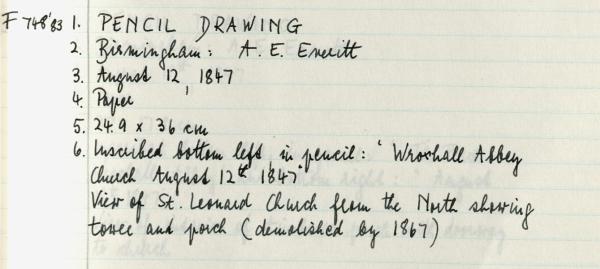 F 748'83 1. PENCIL DRAWING
2. Birmingham: A. E. Everitt
3. August 12, 1847
4. Paper
5. 24.9 x 36 cm
6. Inscribed bottom left in pencil: 'Wroxhall Abbey
Church August 12th 1847'
View of St. Leonard Church from the North showing
tower and porch (demolished by 1867)